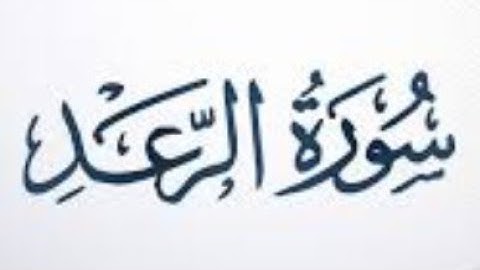 سُورَةُ الرَّعَدِ